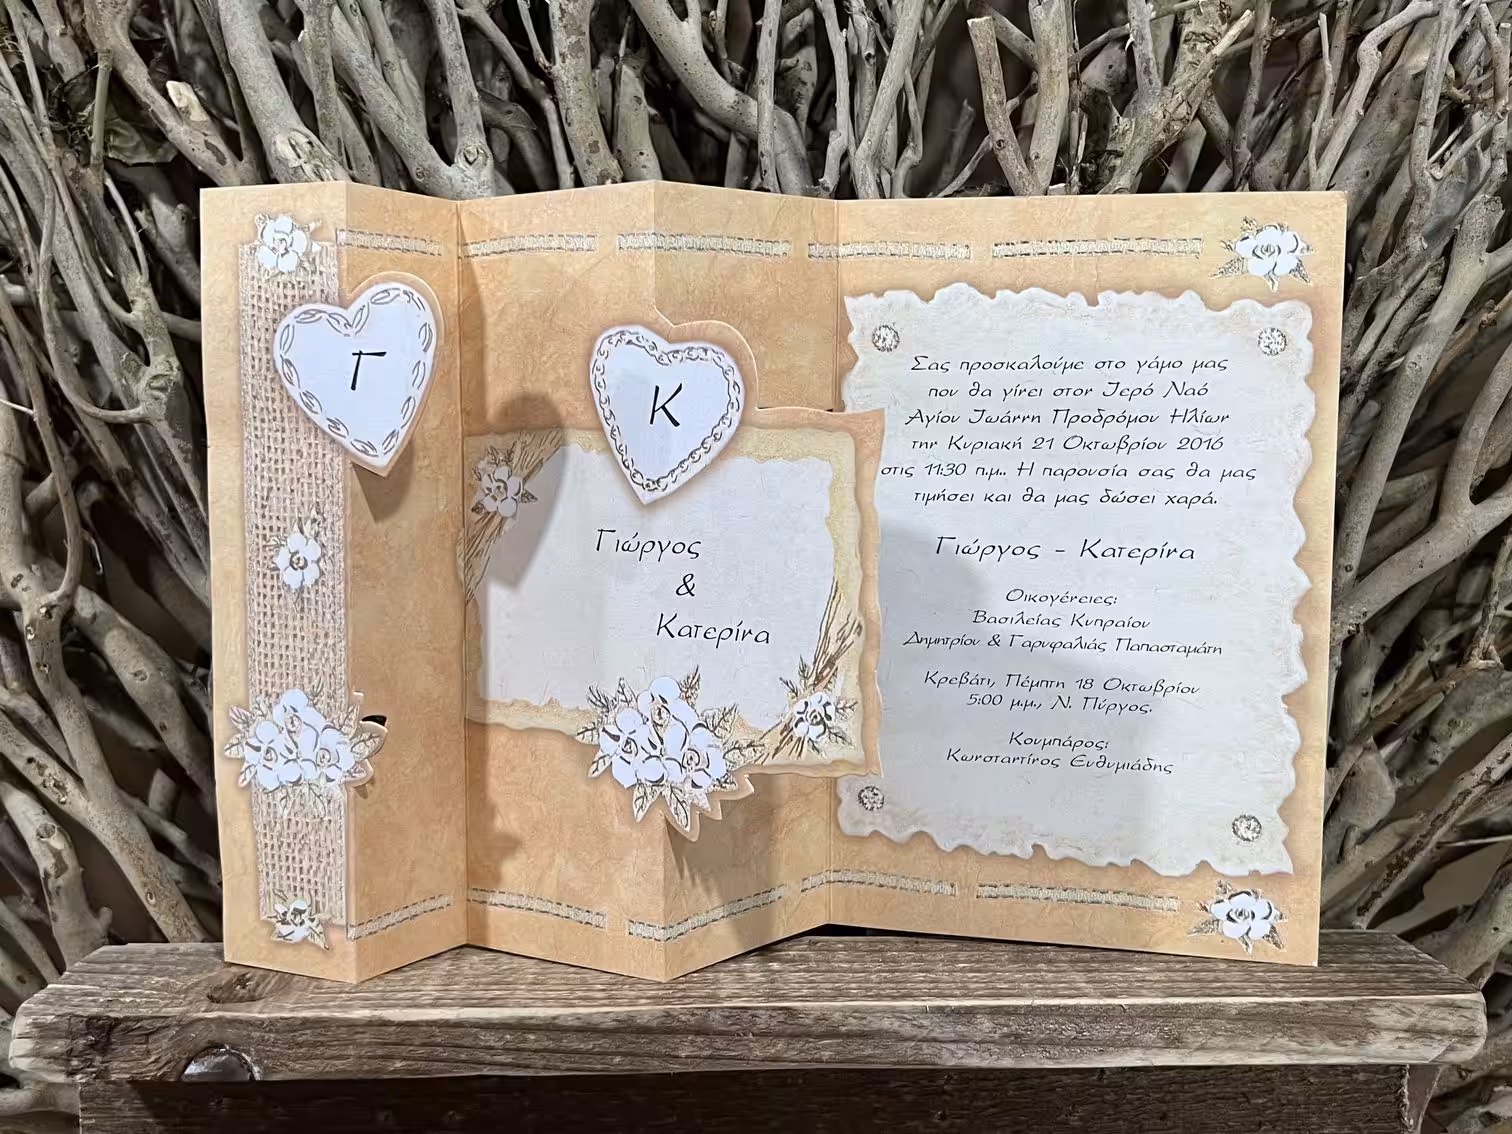 Γ
Κ
Γιώργος
&
Κατερίνα
Σας προσκαλούμε στο γάμο μας
που θα γίνει στον Ιερό Ναό
Αγίου Ιωάννη Προδρόμου Ηλίων
την Κυριακή 21 Οκτωβρίου 2016
στις 11:30 π.μ.. Η παρουσία σας θα μας
τιμήσει και θα μας δώσει χαρά.
Γιώργος - Κατερίνα
Οικογένειες:
Βασιλείας Κυπραίου
Δημητρίου & Γαρυφαλιάς Παπασταμάτη
Κρεβάτι, Πέμπτη 18 Οκτωβρίου
5:00 μ.μ., Ν. Πύργος.
Κουμπάρος:
Κωνσταντίνος Ευθυμιάδης